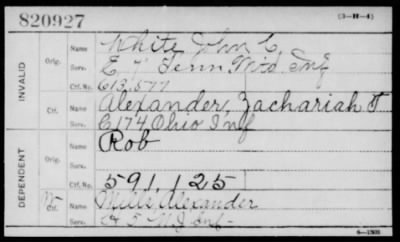 820927 (3-H-4)
INVALID
Orig. Name White John C.
Serv. E 4 Tenn Mtd Inf
Ctf. No. 613,577
Ctf. Name Alexander, Zachariah T
Serv. C 174 Ohio Inf
DEPENDENT
Orig. Name Rob
Serv.
Ctf. No. 591,125
Ctf. Name Mills, Alexander
Serv. 5 Inf